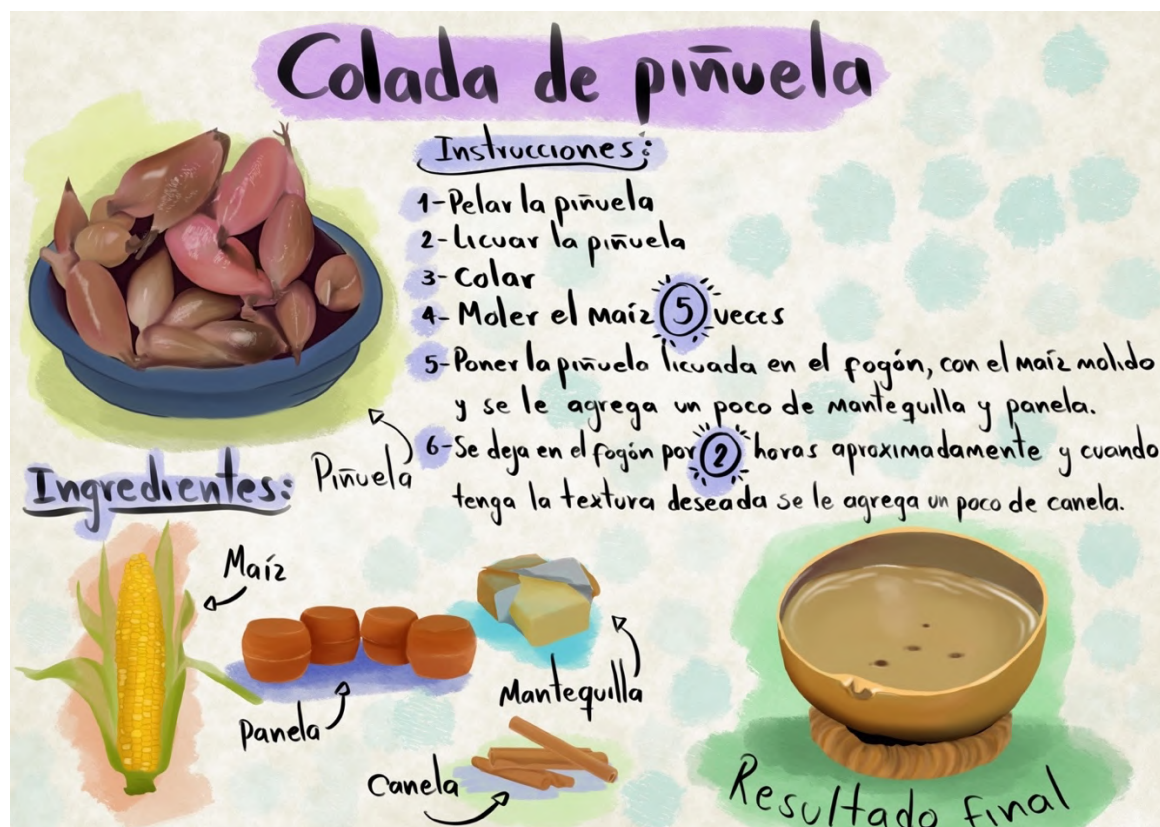 Colada de piñuela
Instrucciones:
1-Pelar la piñuela
2-Licuar la piñuela
3-Colar
4-Moler el maíz 5 veces
5-Poner la piñuela licuada en el fogón, con el maíz molido
y se le agrega un poco de mantequilla y panela.
6-Se deja en el fogón por 2 horas aproximadamente y cuando
tenga la textura deseada se le agrega un poco de canela.
Piñuela
Ingredientes:
Maíz
Panela
Mantequilla
Canela
Resultado final